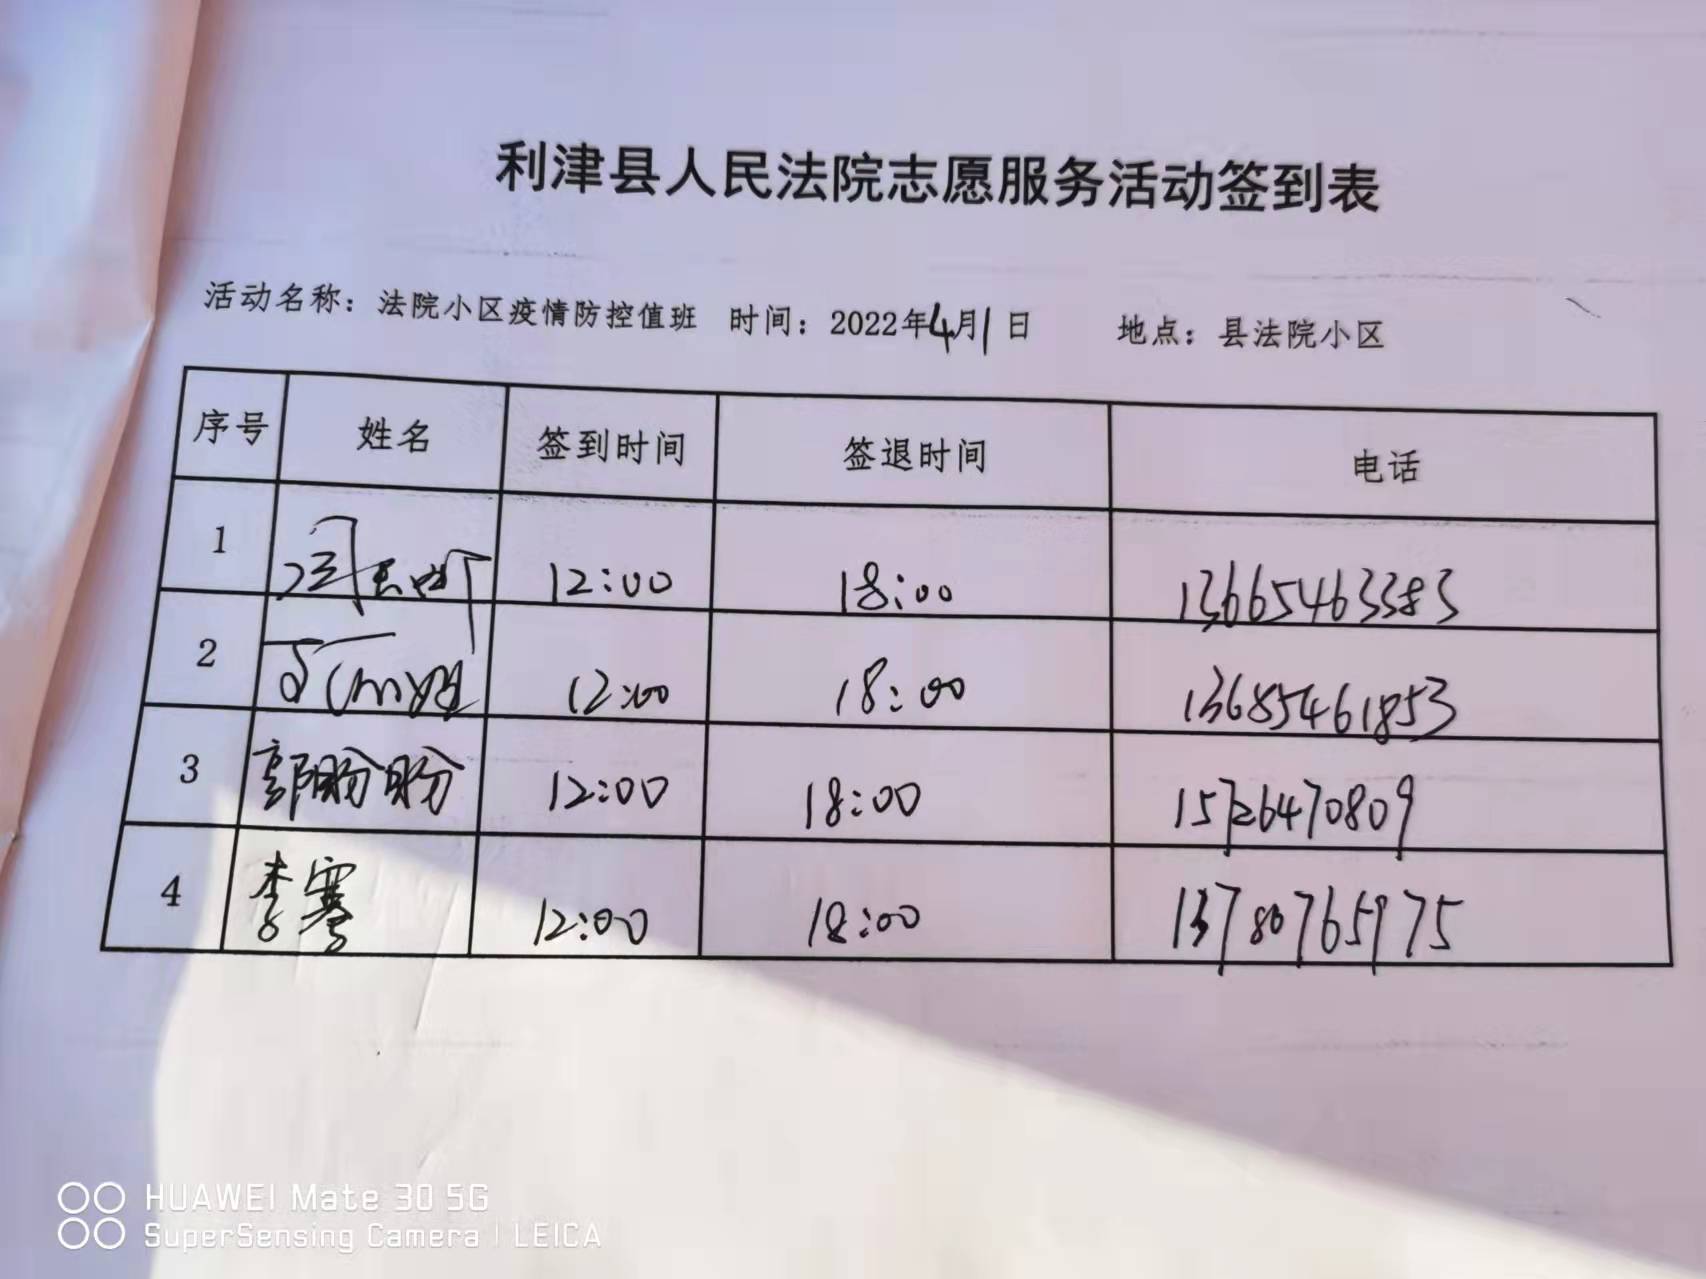 利津县人民法院志愿服务活动签到表
活动名称：法院小区疫情防控值班 时间：2022年4月1日 地点：县法院小区
序号 姓名 签到时间 签退时间 电话
1 12:00 18:00 13665463383
2 12:00 18:00 13685461853
3 郭盼盼 12:00 18:00 15726470809
4 李骞 12:00 18:00 13780765975
HUAWEI Mate 30 5G
SuperSensing Camera | LEICA